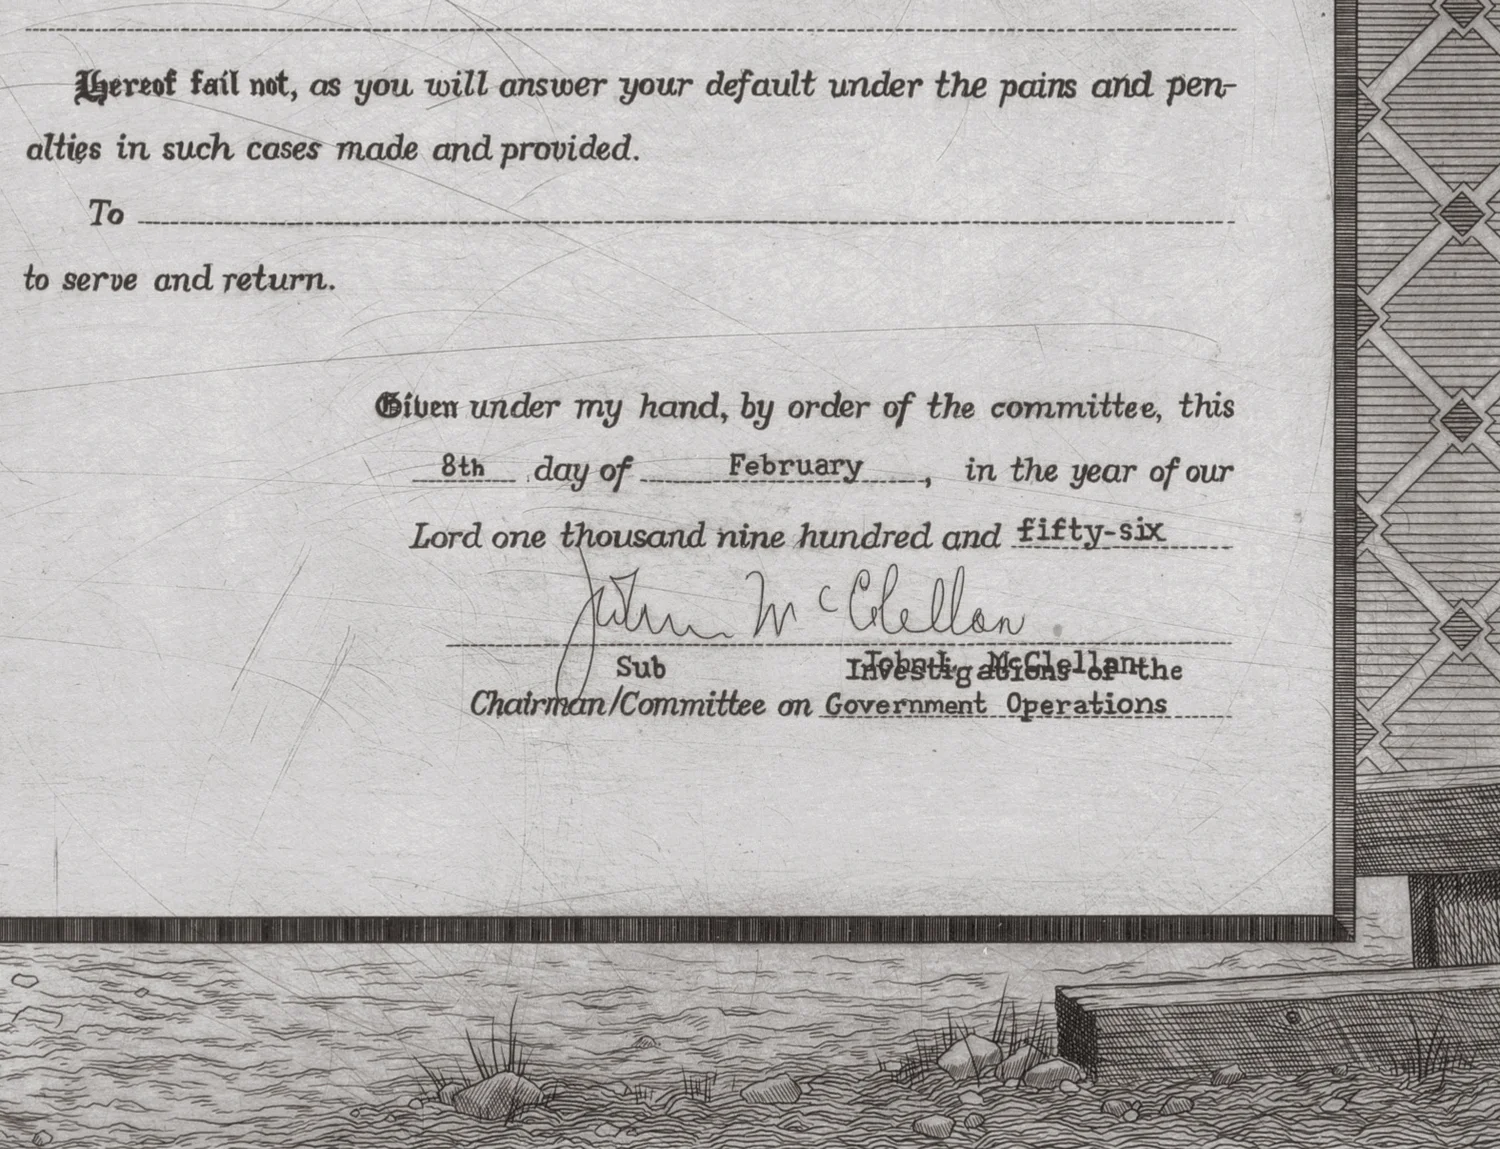 Hereof fail not, as you will answer your default under the pains and pen-
alties in such cases made and provided.
To
to serve and return.
Given under my hand, by order of the committee, this
8th day of February, in the year of our
Lord one thousand nine hundred and fifty-six
John McClellan
John L. McClellan
Sub Investigations of the
Chairman/Committee on Government Operations